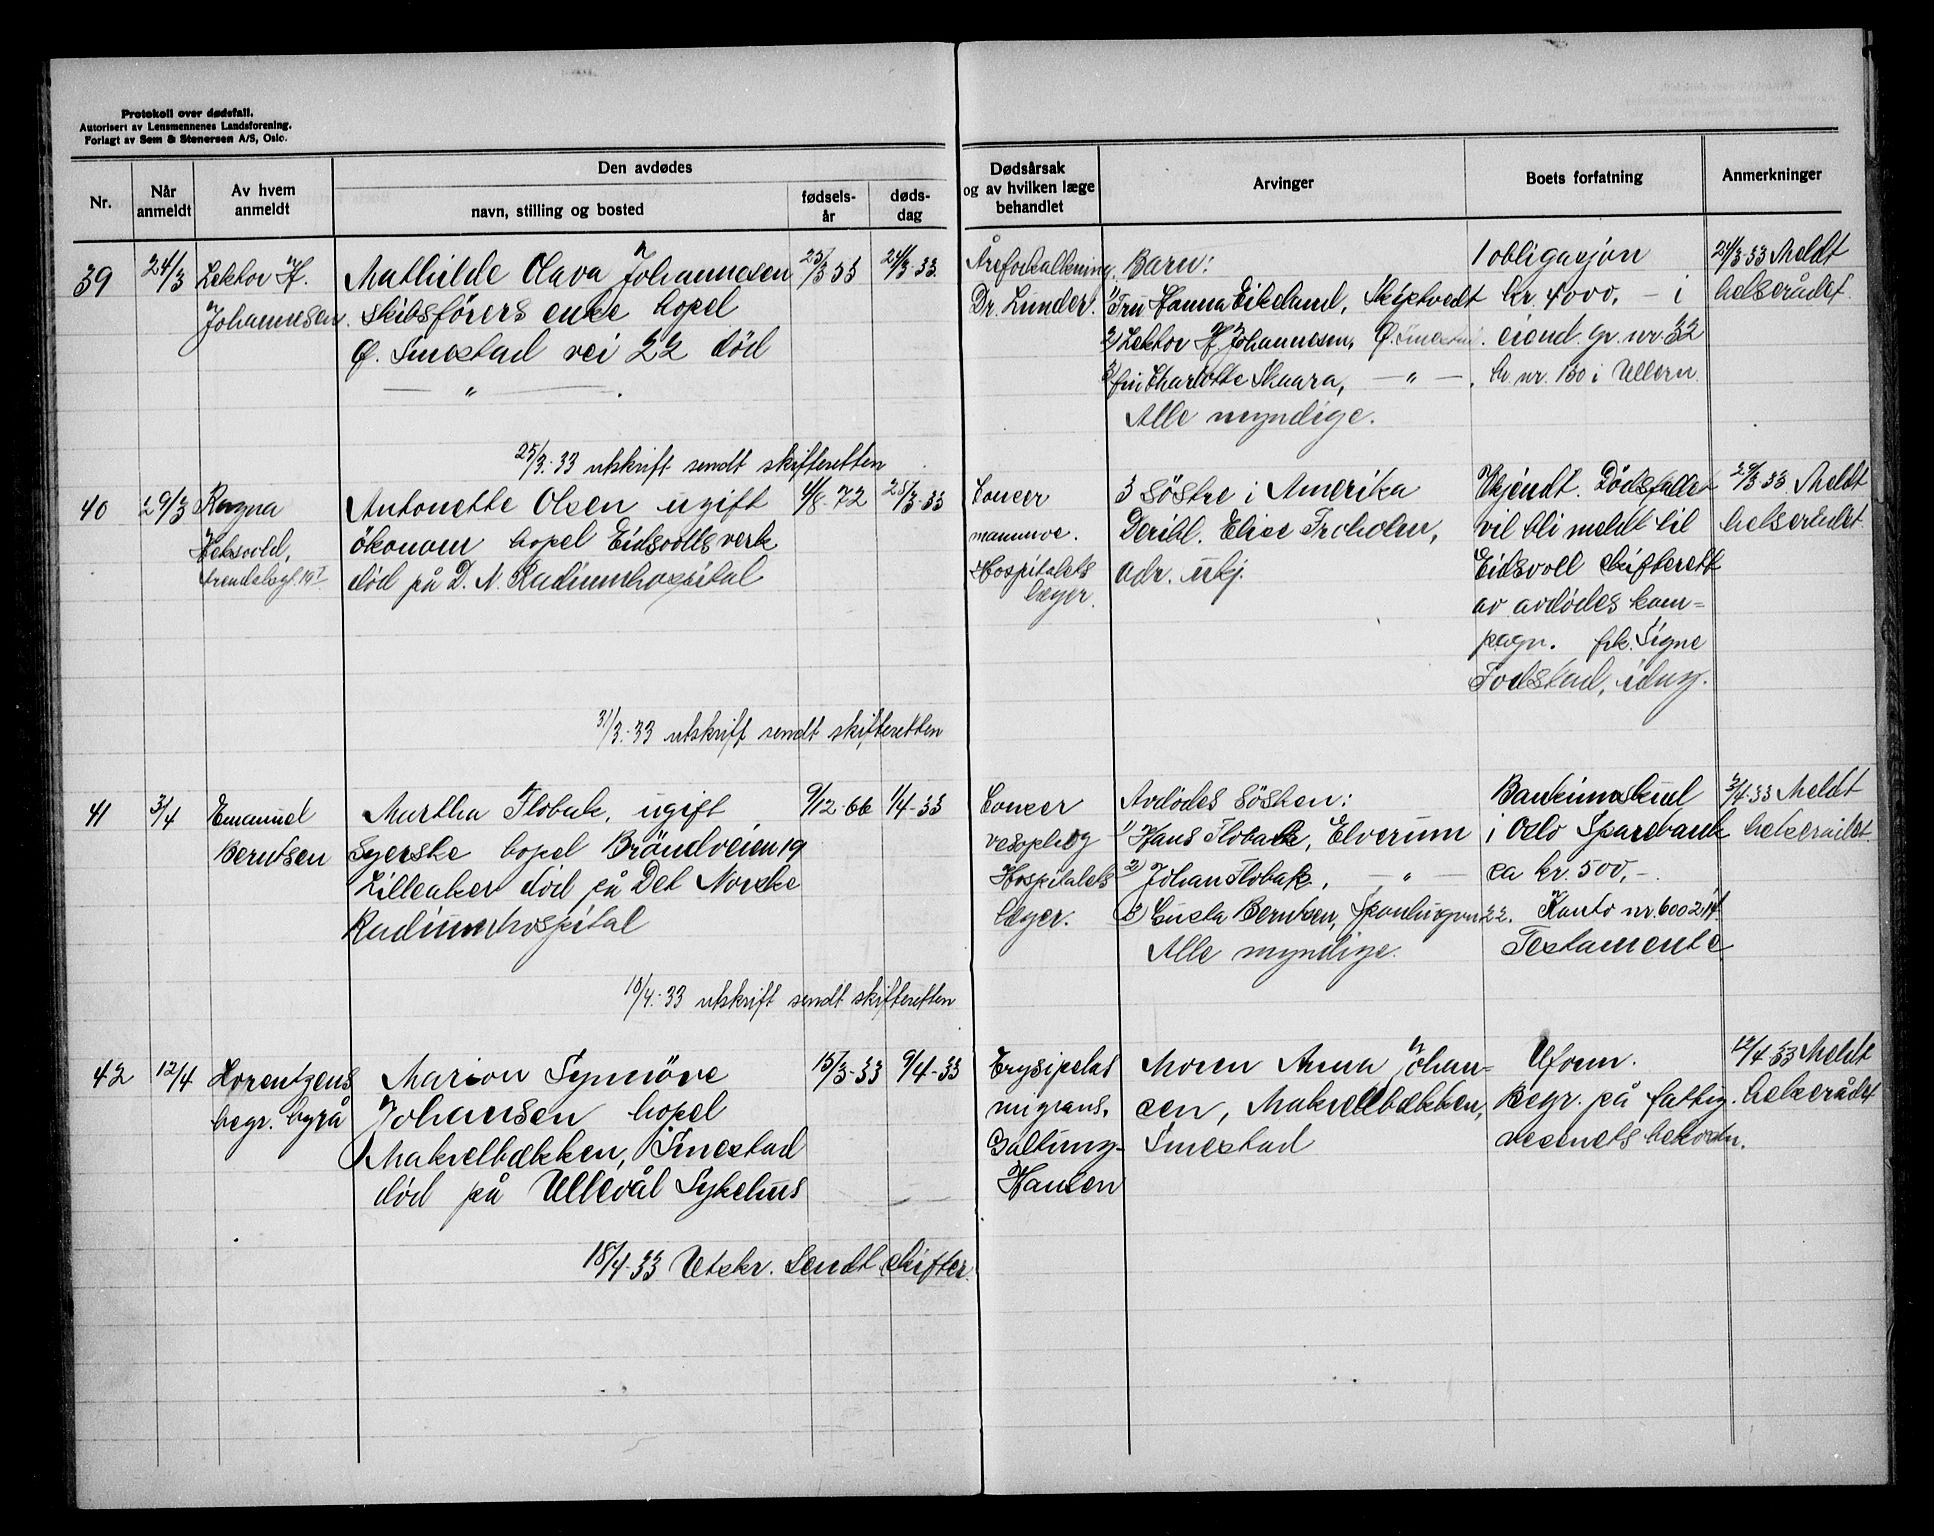 Protokoll over dødsfall.
Autorisert av Lensmennenes Landsforening.
Forlagt av Sem & Stenersen A/S, Oslo.
Nr.
Når anmeldt
Av hvem anmeldt
Den avdødes
navn, stilling og bosted
fødsels-år
døds-dag
Dødsårsak og av hvilken læge behandlet
Arvinger
Boets forfatning
Anmerkninger
39
24/3
Lektor H.
Johannesen.
Mathilde Olava Johannesen
skibsførers enke bopel
Ø. Smestad vei 22 død
— " — .
23/3 53
24/3-33
Åreforkalkning.
Dr. Lunder.
Barn:
1) Fru Hanna Eikeland, Skiptvedt
2) Lektor H. Johannesen, Ø. Smestad.
3) fru Charlotte Skaara, — " —,
Alle myndige.
1 obligasjon
kr. 4000,- i
eiend. gr. nr. 32
br. nr. 130 i Ullern.
24/3-33 Meldt
helserådet.
25/3-33 utskrift sendt skifteretten
40
29/3
Ragna
Heksvold,
Arendalsgt. 19 I
Antonette Olsen ugift
økonom bopel Eidsvolls verk
død på D. N. Radiumhospital
4/8-72
28/3-33
Cancer
mammae.
Hospitalets
læger.
3 søstre i Amerika
Deribl. Elise Troholm,
adr. ukj.
Ukjendt. Dødsfallet
vil bli meldt til
Eidsvoll skifterett
av avdødes kom-
pagn. frk. Signe
Fodstad,
29/3 33. Meldt
helserådet
31/3-33 utskrift sendt skifteretten
41
3/4
Emanuel
Berntsen
Martha Flobak, ugift
Syerske bopel Brøndveien 19
Lilleaker død på Det Norske
Radiumhospital
9/12-66
1/4-33
Cancer
vesophog
Hospitalets
læger.
Avdødes søsken:
1) Hans Flobak, Elverum
2) Johan Flobak, — " —
3) Gusta Berntsen, 22.
Alle myndige.
Bankinnskud
i Oslo Sparebank
ca kr. 500,-.
Konto nr. 600214
Testamente
3/4-33 Meldt
helserådet.
18/4-33 utskrift sendt skifteretten
42
12/4
Lorentzens
begr. byrå
Marion Synnöve
Johansen bopel
Makrelbækken, Smestad
død på Ullevål Sykehus
15/3-33
9/4-33
Erysipelas
migrans.
Galtung-
Hansen
Moren Anna Johan-
sen, Makrellbækken,
Smestad
Uform.
Begr. på fattig-
vesenets bekostn.
12/4-33 Meldt
helserådet
18/4-33 Utskr. Sendt skifter.